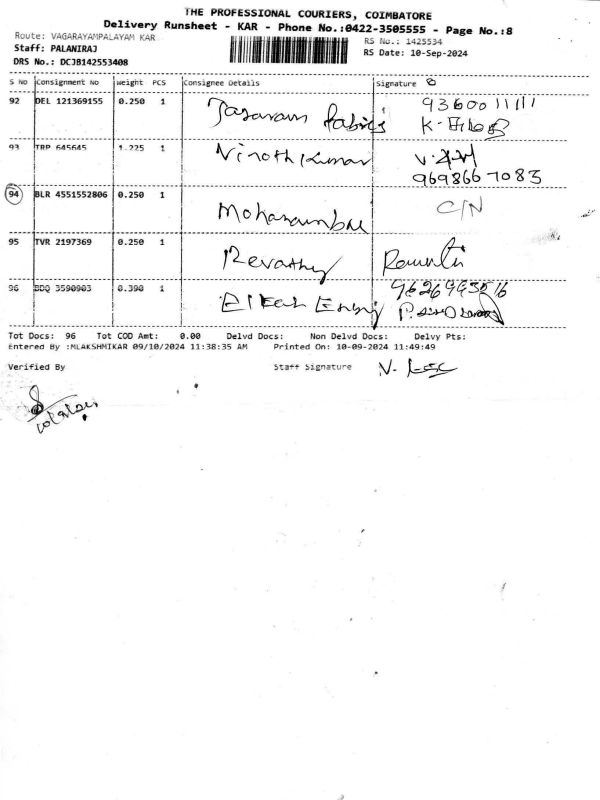 THE PROFESSIONAL COURIERS, COIMBATORE
Delivery Runsheet - KAR - Phone No.:0422-3505555 - Page No.:8
Route: VAGARAYAMPALAYAM KAR RS No.: 1425534
Staff: PALANIRAJ RS Date: 10-Sep-2024
DRS No.: DCJB142553408
S No Consignment No Weight PCS Consignee Details Signature
92 DEL 121369155 0.250 1 9360011111
93 TRP 645645 1.225 1 Vinothkumar
9698667083
94 BLR 4551552806 0.250 1 C/N
95 TVR 2197369 0.250 1 Revathy
96 BDQ 3590903 0.390 1
Tot Docs: 96 Tot COD Amt: 0.00 Delvd Docs: Non Delvd Docs: Delvy Pts:
Entered By :MLAKSHMIKAR 09/10/2024 11:38:35 AM Printed On: 10-09-2024 11:49:49
Verified By Staff Signature